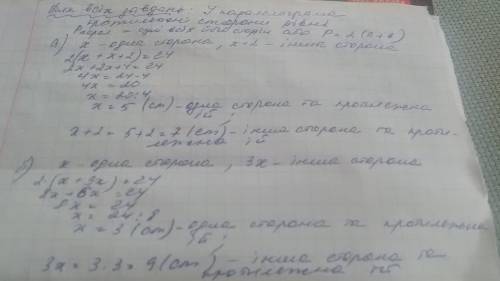 Для всіх завдань: У паралелограма
протилежні сторони рівні
Pпарал - сума всіх його сторін або P = 2(a+b)
а) x - одна сторона, x+2 - інша сторона
2(x+x+2)=24
2x+2x+4=24
4x=24-4
4x=20
x=20:4
x=5 (cm) - одна сторона та протилежна
їй;
x+2=5+2=7 (cm) - інша сторона та проти-
лежна їй
б) x - одна сторона, 3x - інша сторона
2(x+3x)=24
2x+6x=24
8x=24
x=24:8
x=3 (cm) - одна сторона та протилежна
їй;
3x=3·3=9 (cm) - інша сторона та
протилежна їй